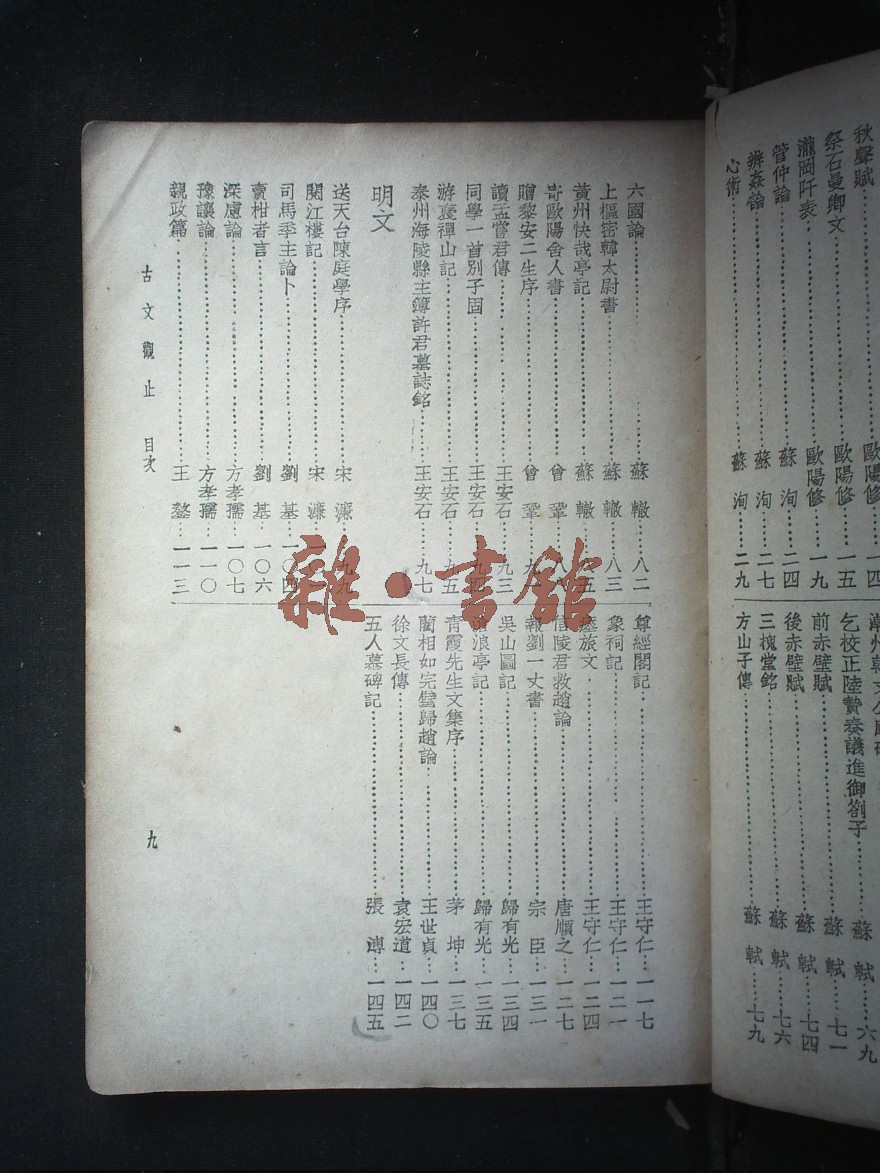 秋聲賦…歐陽修…一四
祭石曼卿文…歐陽修…一五
瀧岡阡表…歐陽修…一九
管仲論…蘇洵…二四
辨姦論…蘇洵…二七
心術…蘇洵…二九
潮州韓文公廟碑
乞校正陸贄奏議進御劄子…蘇軾…六九
前赤壁賦…蘇軾…七一
後赤壁賦…蘇軾…七四
三槐堂銘…蘇軾…七六
方山子傳…蘇軾…七九
六國論…蘇轍…八二
上樞密韓太尉書…蘇轍…八三
黃州快哉亭記…蘇轍…八五
寄歐陽舍人書…曾鞏
贈黎安二生序…曾鞏
讀孟嘗君傳…王安石…九三
同學一首別子固…王安石…九四
游褒禪山記…王安石…九五
泰州海陵縣主簿許君墓誌銘…王安石…九七
明文
送天台陳庭學序…宋濂…九九
閱江樓記…宋濂
司馬季主論卜…劉基…一〇四
賣柑者言…劉基…一〇六
深慮論…方孝孺…一〇七
豫讓論…方孝孺…一一〇
親政篇…王鏊…一一三
尊經閣記…王守仁…一一七
象祠記…王守仁…一二一
瘞旅文…王守仁…一二四
信陵君救趙論…唐順之…一二七
報劉一丈書…宗臣…一三一
吳山圖記…歸有光…一三四
滄浪亭記…歸有光…一三五
青霞先生文集序…茅坤…一三七
藺相如完璧歸趙論…王世貞…一四〇
徐文長傳…袁宏道…一四二
五人墓碑記…張溥…一四五
古文觀止 目次
九
雜·書館